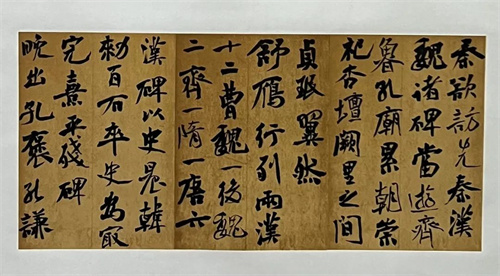 秦欲訪先秦漢
魏諸碑當遊齊
魯孔廟累朝崇
祀杏壇闕里之間
貞珉翼然
舒雁行列兩漢
十二曹魏一後魏
二齊一隋一唐六
漢碑以史晨韓
勑百石卒史為寂
完熹平殘碑
晚出孔褒孔謙